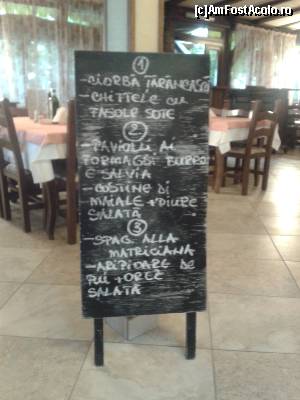 (c)AmFostAcolo.ro
1
-CIORBĂ ȚĂRĂNEASCĂ
-CHIFTELE CU
FASOLE SOTE
2
-RAVIOLI AI
FORMAGGI BURRO
E SALVIA
-COSTINE DI
MAIALE +PIURE
SALATĂ
3
-SPAG. ALLA
MATRICIANA
-ARIPIOARE DE
PUI +OREZ
SALATĂ